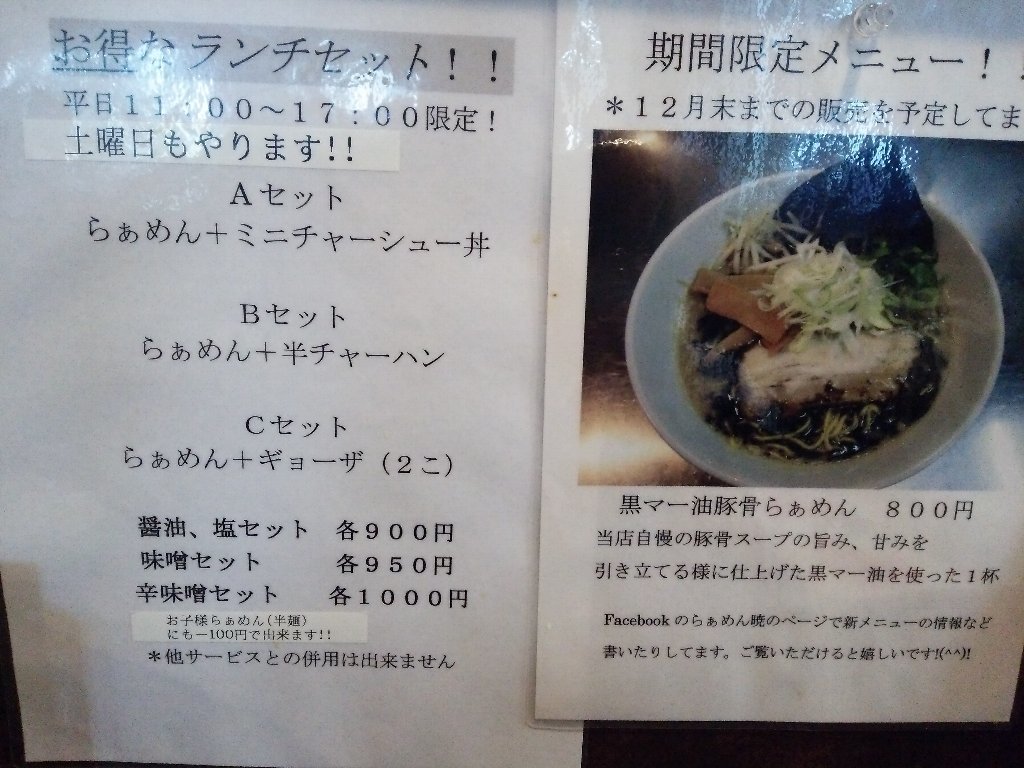 お得なランチセット！！
平日１１：００～１７：００限定！
土曜日もやります!!
Ａセット
らぁめん＋ミニチャーシュー丼
Ｂセット
らぁめん＋半チャーハン
Ｃセット
らぁめん＋ギョーザ（２こ）
醤油、塩セット　各９００円
味噌セット　各９５０円
辛味噌セット　各１０００円
お子様らぁめん(半麺)
にも－100円で出来ます!!
＊他サービスとの併用は出来ません
期間限定メニュー！！
＊１２月末までの販売を予定してま
黒マー油豚骨らぁめん　８００円
当店自慢の豚骨スープの旨み、甘みを
引き立てる様に仕上げた黒マー油を使った１杯
Facebookのらぁめん暁のページで新メニューの情報など
書いたりしてます。ご覧いただけると嬉しいです!(^^)!